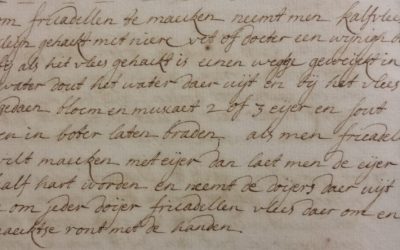 om fricadellen te maecken neemt men kalfvlees
gehackt met niere vet of docter een wijnigh
als het vlees gehackt is eenen wegge geweickt in
water dout het water daer uijt en bij het vlees
gedaen bloem en muscaet 2 of 3 eijer en sout
en in boter laten braden als men fricadel
wilt maecken met eijer dan laet men de eijer
half hart worden en neemt de doijers daer uijt
om jeder doijer fricadellen vlees daer om en
maecktse ront met de handen